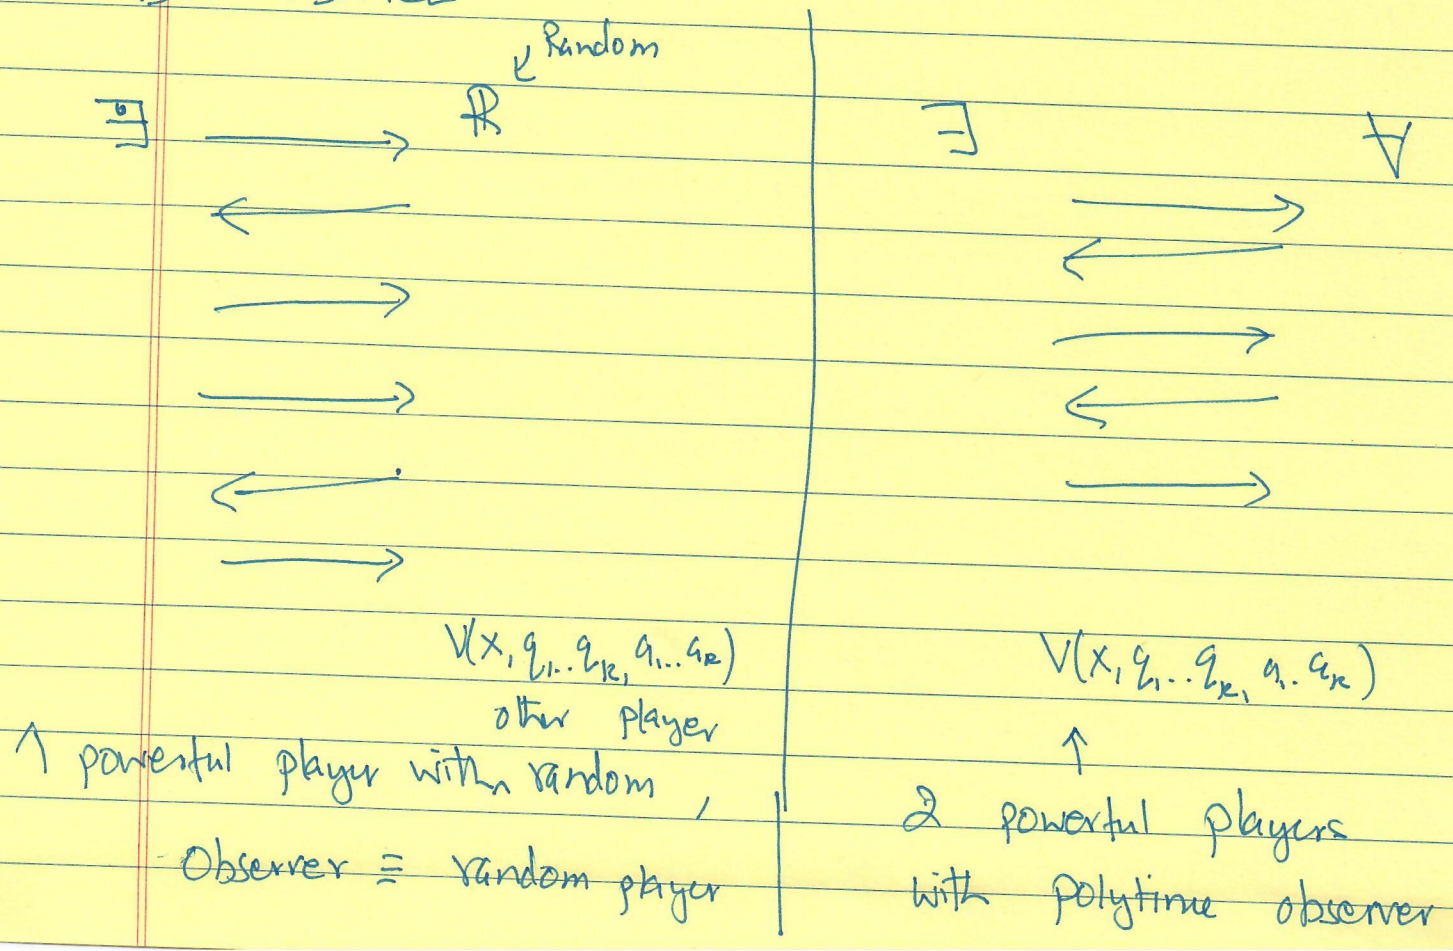 Random
∃ ℝ
V(x, q₁..qₖ, a₁...aₖ)
other player
1 powerful player with random,
Observer ≡ random player
∃ ∀
V(x, q₁..qₖ, a₁..aₖ)
2 powerful players
with polytime observer